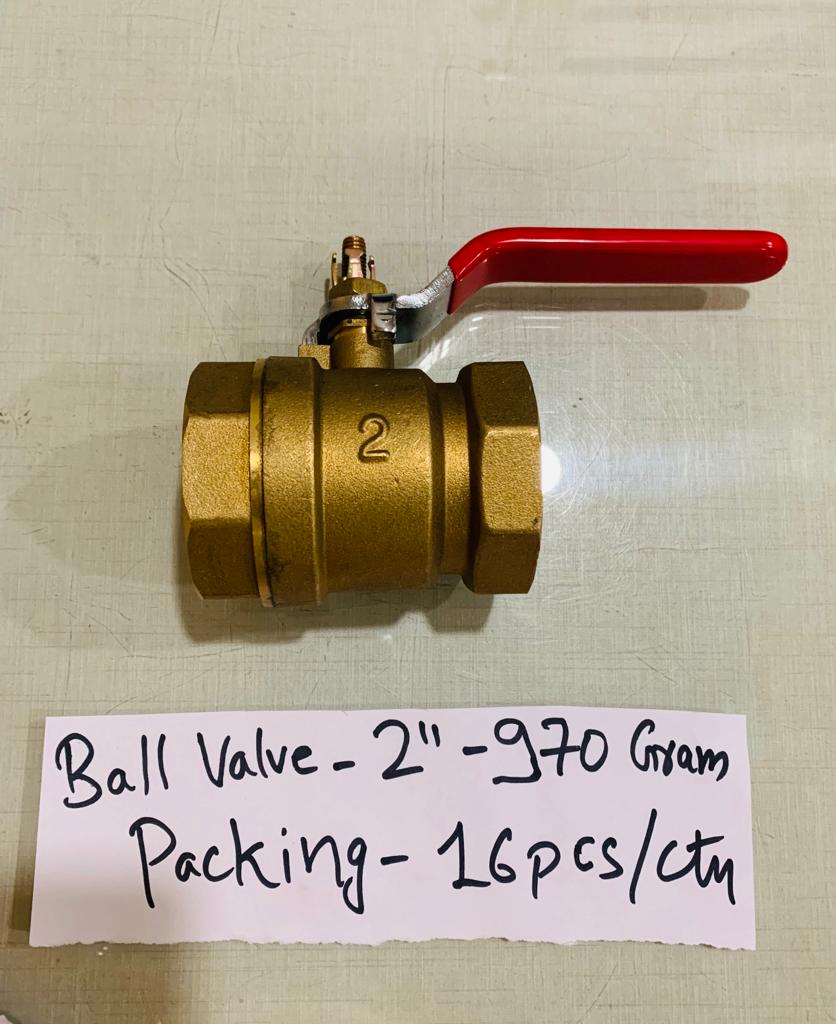 2
Ball Valve - 2" - 970 Gram
Packing - 16pcs/ctn